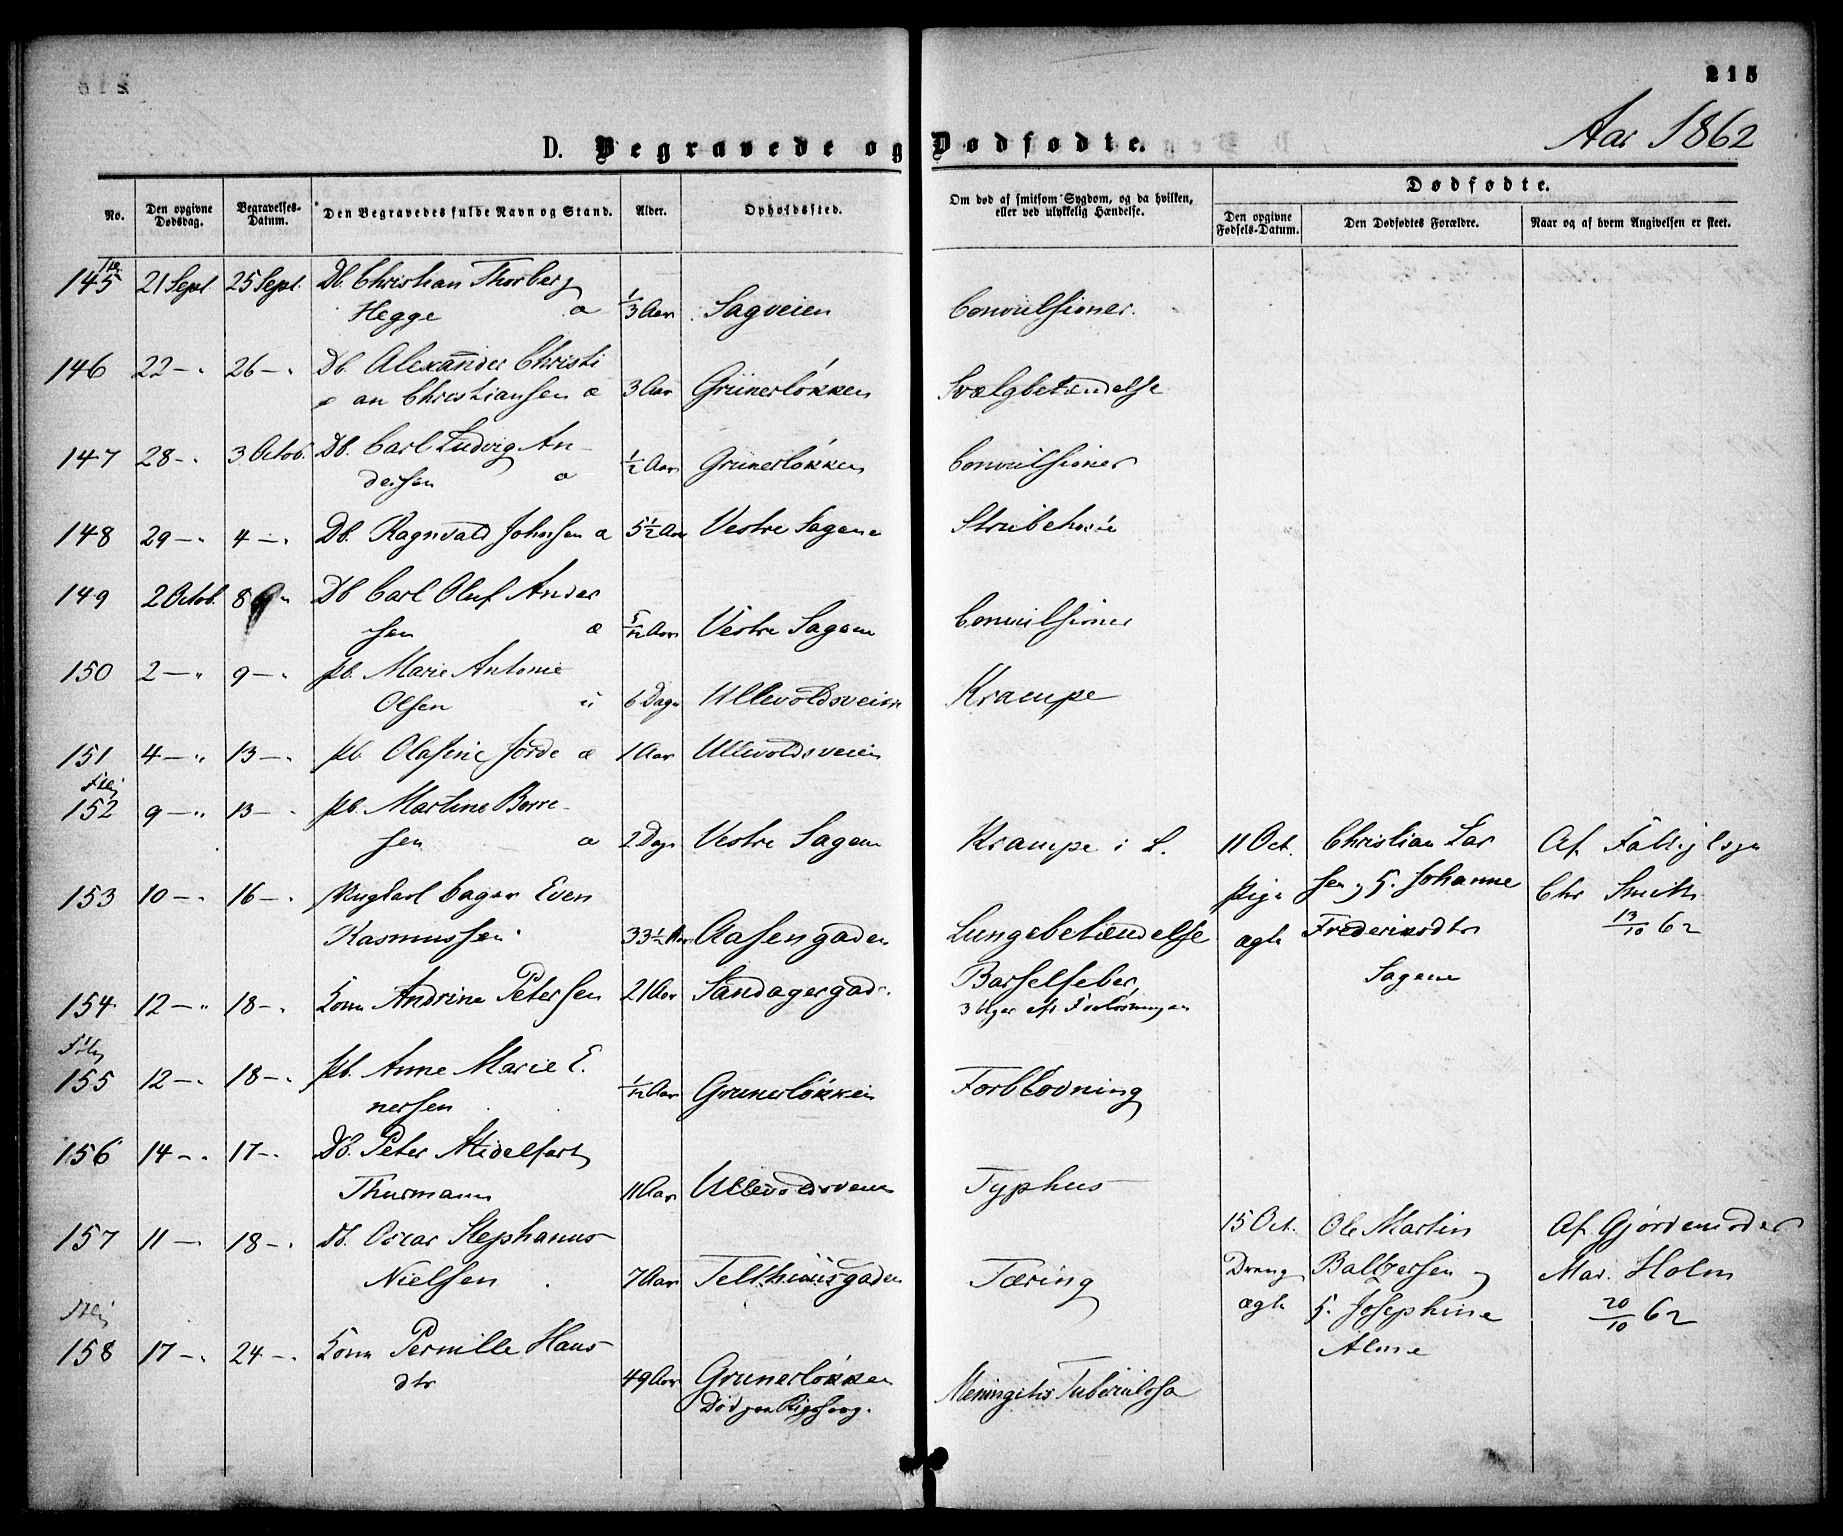 215
Aar 1862
D. Begravede og Dødfødte.
No.
Den opgivne Dødsdag.
Begravelses-Datum.
Den Begravedes fulde Navn og Stand.
Alder.
Opholdssted.
Om død af smitsom Sygdom, og da hvilken, eller ved ulykkelig Hændelse.
Dødfødte.
Den opgivne Fødsels-Datum.
Den Dødfødtes Forældre.
Naar og af hvem Angivelsen er skeet.
145 21 Sept. 25 Sept. Db. Christian Thorberg
Hegge æ 1/3 Aar Sagveien Convulsioner.
146 22 — " 26 — " Db. Alexander Christi
an Christiansen æ 3 Aar Grünerløkken Svælgbetændelse
147 28 — " 3 Octob. Db. Carl Ludvig An-
dersen æ 1/2 Aar Grünerløkken Convulsioner
148 29 — " 4 — " Db. Ragnvald Johnsen æ 5 1/2 Aar Vestre Sagene Strubehoste
149 2 Octob. 8 — " Db Carl Oluf Ander
sen æ 5/12 Aar Vestre Sagene Convulsioner
150 2 — " 9 — " pb. Marie Antonie
Olsen u 6 Dage Ullevoldsveien Krampe
151 4 — " 13 — " pb. Olafine Jorde æ 1 Aar Ullevoldsveien
152 9 — " 13 — " pb. Martine Borre-
sen æ 2 Dage Vestre Sagene Krampe i L. 11 Oct. Christian Lar Af
Pige sen og H. Johanne Chr Smith
153 10 — " 16 — " Ungkarl Even
Rasmussen 33 1/2 Aar Aasengaden Lungebetændelse ægte Frederiksdtr 13/10 62
Sagene
154 12 — " 18 — " Kone Andrine Petersen 21 Aar Sandagergad. Barselfeber,
3 Uger ef. Forløsningen
155 12 — " 18 — " pb. Anne Marie E.
nersen 1/12 Aar Grünerløkken Forblødning
156 14 — " 17 — " Db. Peter Midelfart
Thurmann 11 Aar Ullevoldsveien Typhus
157 11 — " 18 — " Db. Oscar Stephanus
Nielsen 7 Aar Telthuusgaden Tæring
15 Oct. Ole Martin Af Gjordemoder
Dreng Baltzersen og Mad. Holm
ægte H. Josephine 20/10 62
158 17 — " 24 — " Kone Pernille Hans-
dtr 49 Aar Grunerløkken Meningitis Tuberculosa
Død paa Rigshosp.